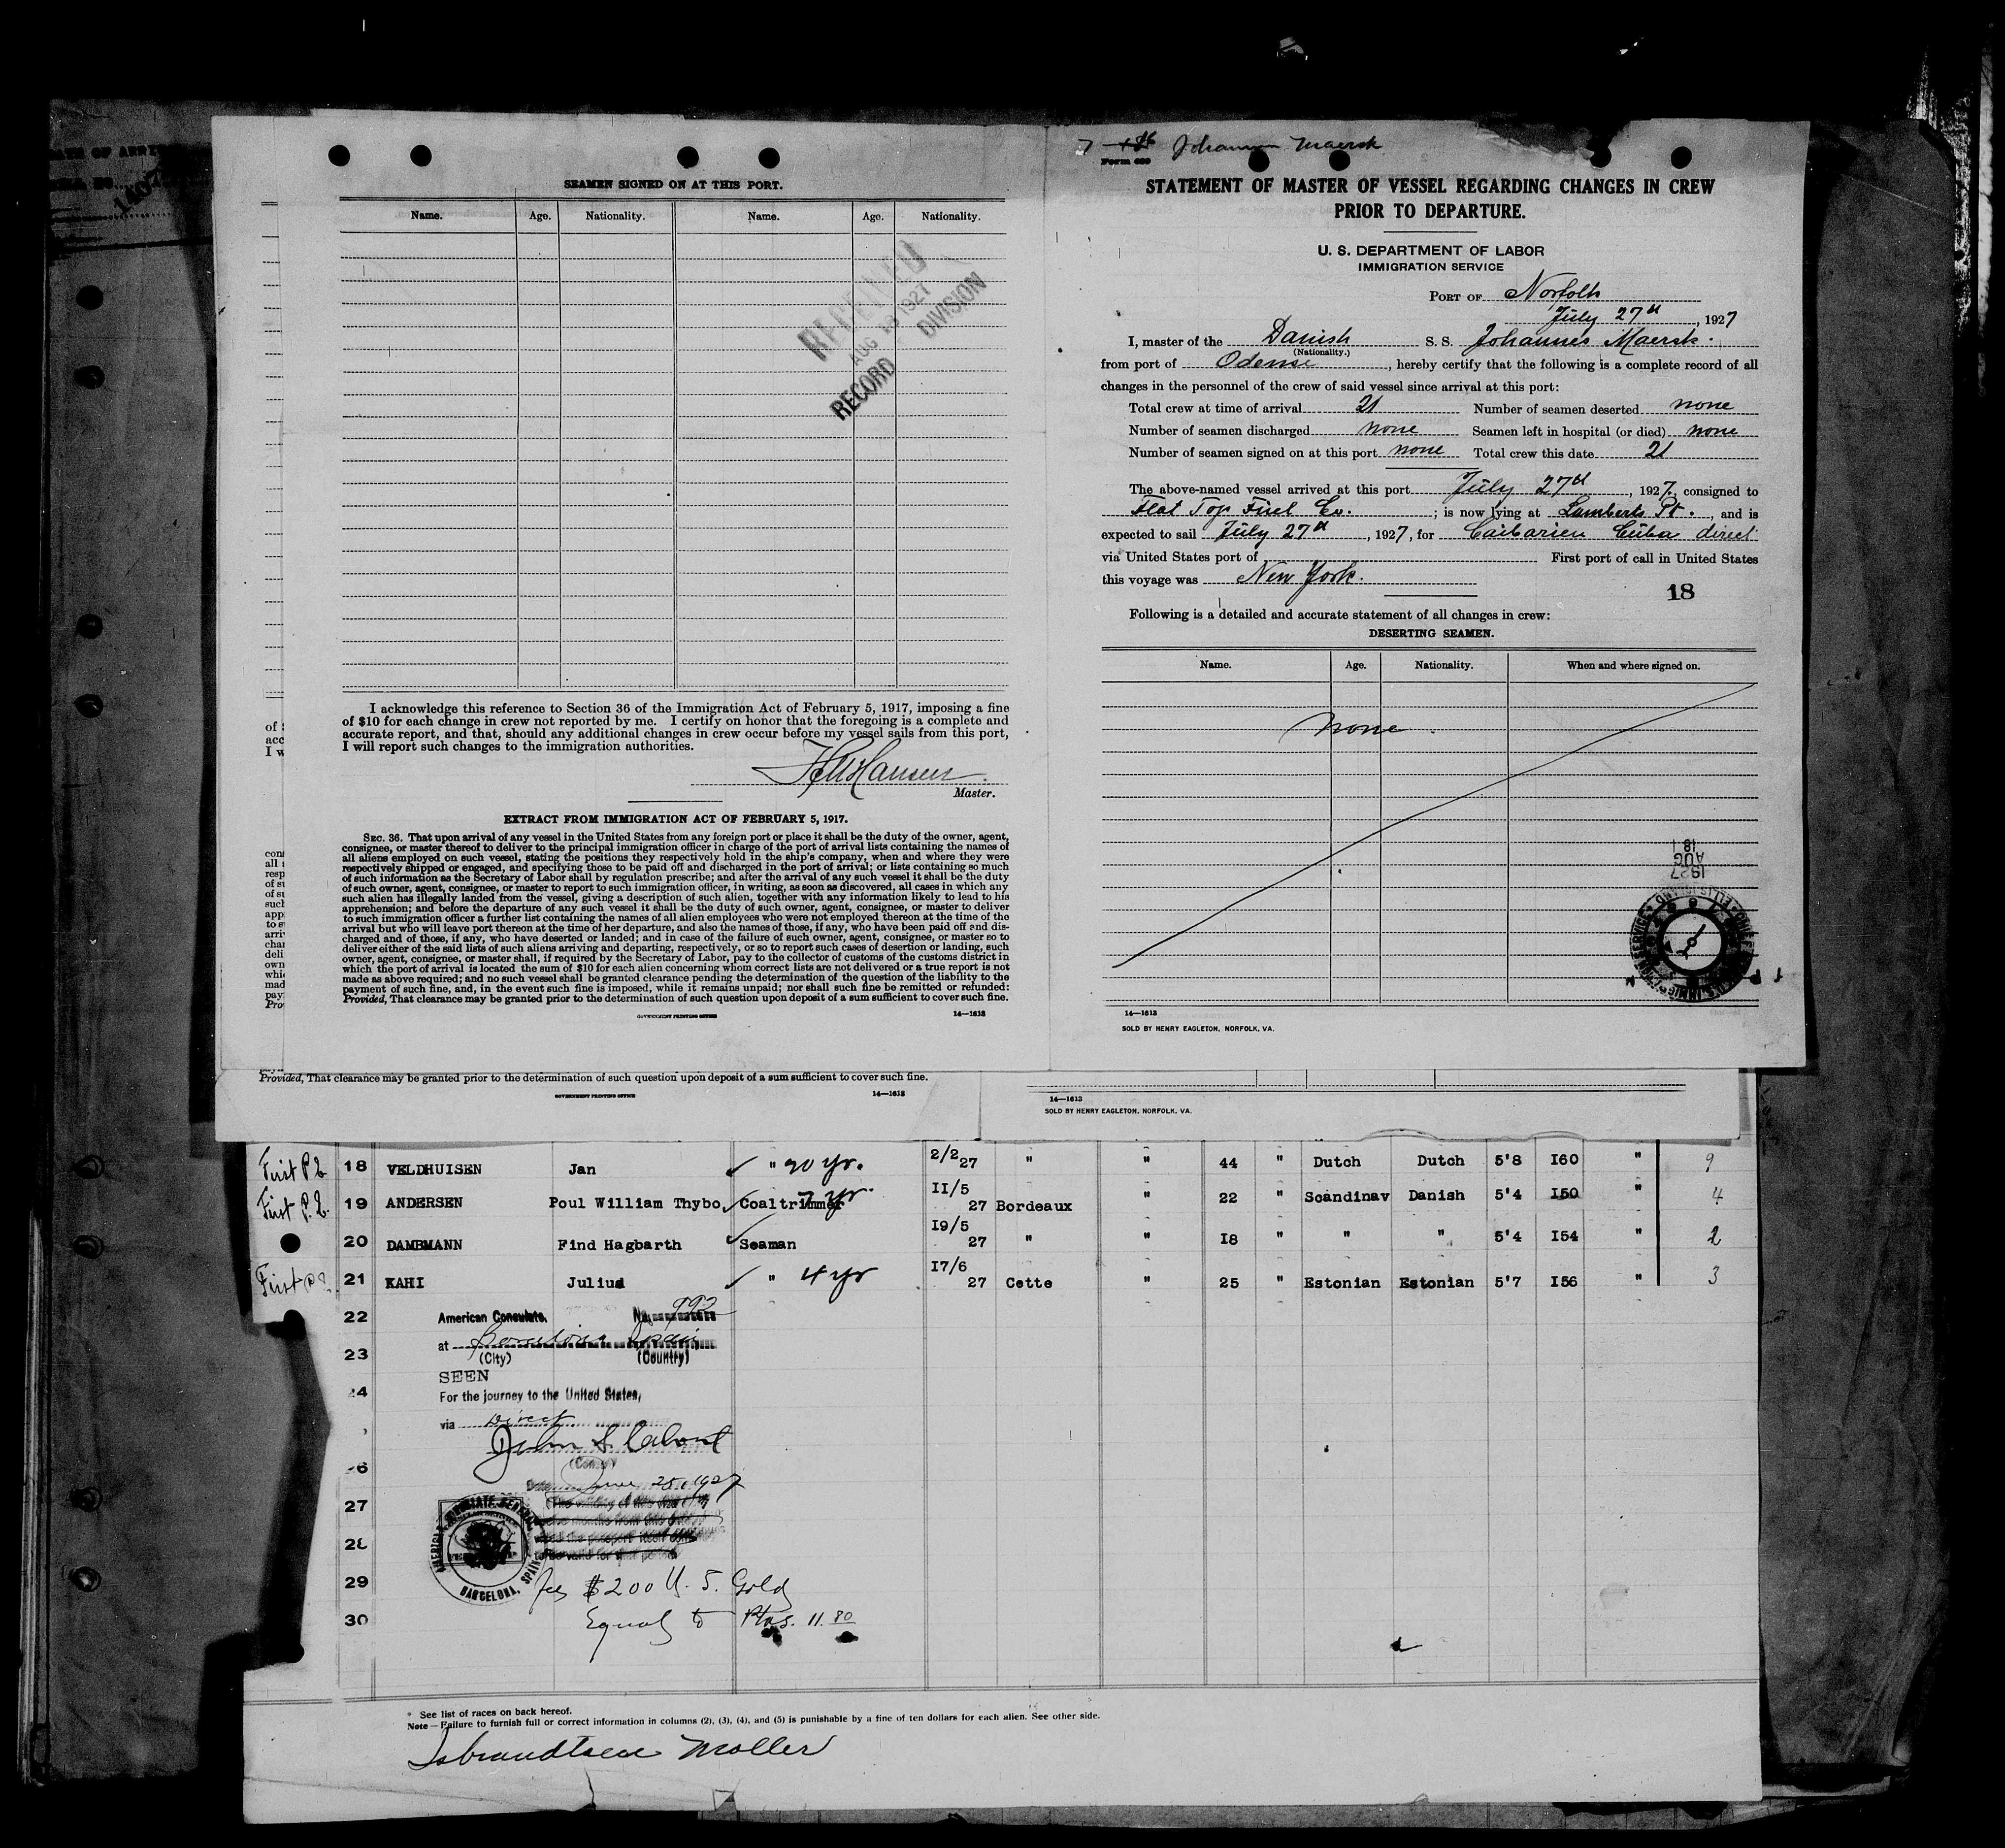 SEAMEN SIGNED ON AT THIS PORT.
Name. Age. Nationality. Name. Age. Nationality.
RECEIVED
AUG 18 1927
RECORD DIVISION
I acknowledge this reference to Section 36 of the Immigration Act of February 5, 1917, imposing a fine
of $10 for each change in crew not reported by me. I certify on honor that the foregoing is a complete and
accurate report, and that, should any additional changes in crew occur before my vessel sails from this port,
I will report such changes to the immigration authorities.
Hansen
Master.
EXTRACT FROM IMMIGRATION ACT OF FEBRUARY 5, 1917.
SEC. 36. That upon arrival of any vessel in the United States from any foreign port or place it shall be the duty of the owner, agent,
consignee, or master thereof to deliver to the principal immigration officer in charge of the port of arrival lists containing the names of
all aliens employed on such vessel, stating the positions they respectively hold in the ship's company, when and where they were
respectively shipped or engaged, and specifying those to be paid off and discharged in the port of arrival; or lists containing so much
of such information as the Secretary of Labor shall by regulation prescribe; and after the arrival of any such vessel it shall be the duty
of such owner, agent, consignee, or master to report to such immigration officer, in writing, as soon as discovered, all cases in which any
such alien has illegally landed from the vessel, giving a description of such alien, together with any information likely to lead to his
apprehension; and before the departure of any such vessel it shall be the duty of such owner, agent, consignee, or master to deliver
to such immigration officer a further list containing the names of all alien employees who were not employed thereon at the time of the
arrival but who will leave port thereon at the time of her departure, and also the names of those, if any, who have been paid off and dis-
charged and of those, if any, who have deserted or landed; and in case of the failure of such owner, agent, consignee, or master so to
deliver either of the said lists of such aliens arriving and departing, respectively, or so to report such cases of desertion or landing, such
owner, agent, consignee, or master shall, if required by the Secretary of Labor, pay to the collector of customs of the customs district in
which the port of arrival is located the sum of $10 for each alien concerning whom correct lists are not delivered or a true report is not
made as above required; and no such vessel shall be granted clearance pending the determination of the question of the liability to the
payment of such fine, and, in the event such fine is imposed, while it remains unpaid; nor shall such fine be remitted or refunded:
Provided, That clearance may be granted prior to the determination of such question upon deposit of a sum sufficient to cover such fine.
GOVERNMENT PRINTING OFFICE 14—1613
Johannes Maersk
Form 689
STATEMENT OF MASTER OF VESSEL REGARDING CHANGES IN CREW
PRIOR TO DEPARTURE.
U. S. DEPARTMENT OF LABOR
IMMIGRATION SERVICE
PORT OF Norfolk
July 27th, 1927
I, master of the Danish S. S. Johannes Maersk.
(Nationality.)
from port of Odense, hereby certify that the following is a complete record of all
changes in the personnel of the crew of said vessel since arrival at this port:
Total crew at time of arrival 21 Number of seamen deserted none
Number of seamen discharged none Seamen left in hospital (or died) none
Number of seamen signed on at this port none Total crew this date 21
The above-named vessel arrived at this port July 27th, 1927, consigned to
Flat Top Fuel Co.; is now lying at Lamberts Pt., and is
expected to sail July 27th, 1927, for Caibarien Cuba direct
via United States port of First port of call in United States
this voyage was New York.
18
Following is a detailed and accurate statement of all changes in crew:
DESERTING SEAMEN.
Name. Age. Nationality. When and where signed on.
none
1927
AUG
18
14—1613
SOLD BY HENRY EAGLETON, NORFOLK, VA.
Provided, That clearance may be granted prior to the determination of such question upon deposit of a sum sufficient to cover such fine.
GOVERNMENT PRINTING OFFICE 14—1613
14—1613
SOLD BY HENRY EAGLETON, NORFOLK, VA.
18 VELDHUISEN Jan " 20 yr. 2/2 27 " " 44 " Dutch Dutch 5'8 I60 " 9
19 ANDERSEN Poul William Thybo Coaltrimmer 7 yr. II/5 27 Bordeaux " 22 " Scandinav Danish 5'4 I50 " 4
20 DAMBMANN Find Hagbarth Seaman I9/5 27 " " I8 " " " 5'4 I54 " 2
21 KAHI Julius " 4 yr I7/6 27 Cette " 25 " Estonian Estonian 5'7 I56 " 3
22
American Consulate, No. 992
at Barcelona Spain
23
(City) (Country)
SEEN
24
For the journey to the United States,
via Direct
Date June 25, 1927
27
28
AMERICAN CONSULATE GENERAL
BARCELONA, SPAIN
29
fee $2.00 U. S. Gold
30
Equal to Ptas. 11.80
* See list of races on back hereof.
Note — Failure to furnish full or correct information in columns (2), (3), (4), and (5) is punishable by a fine of ten dollars for each alien. See other side.
Isbrandtsen Moller